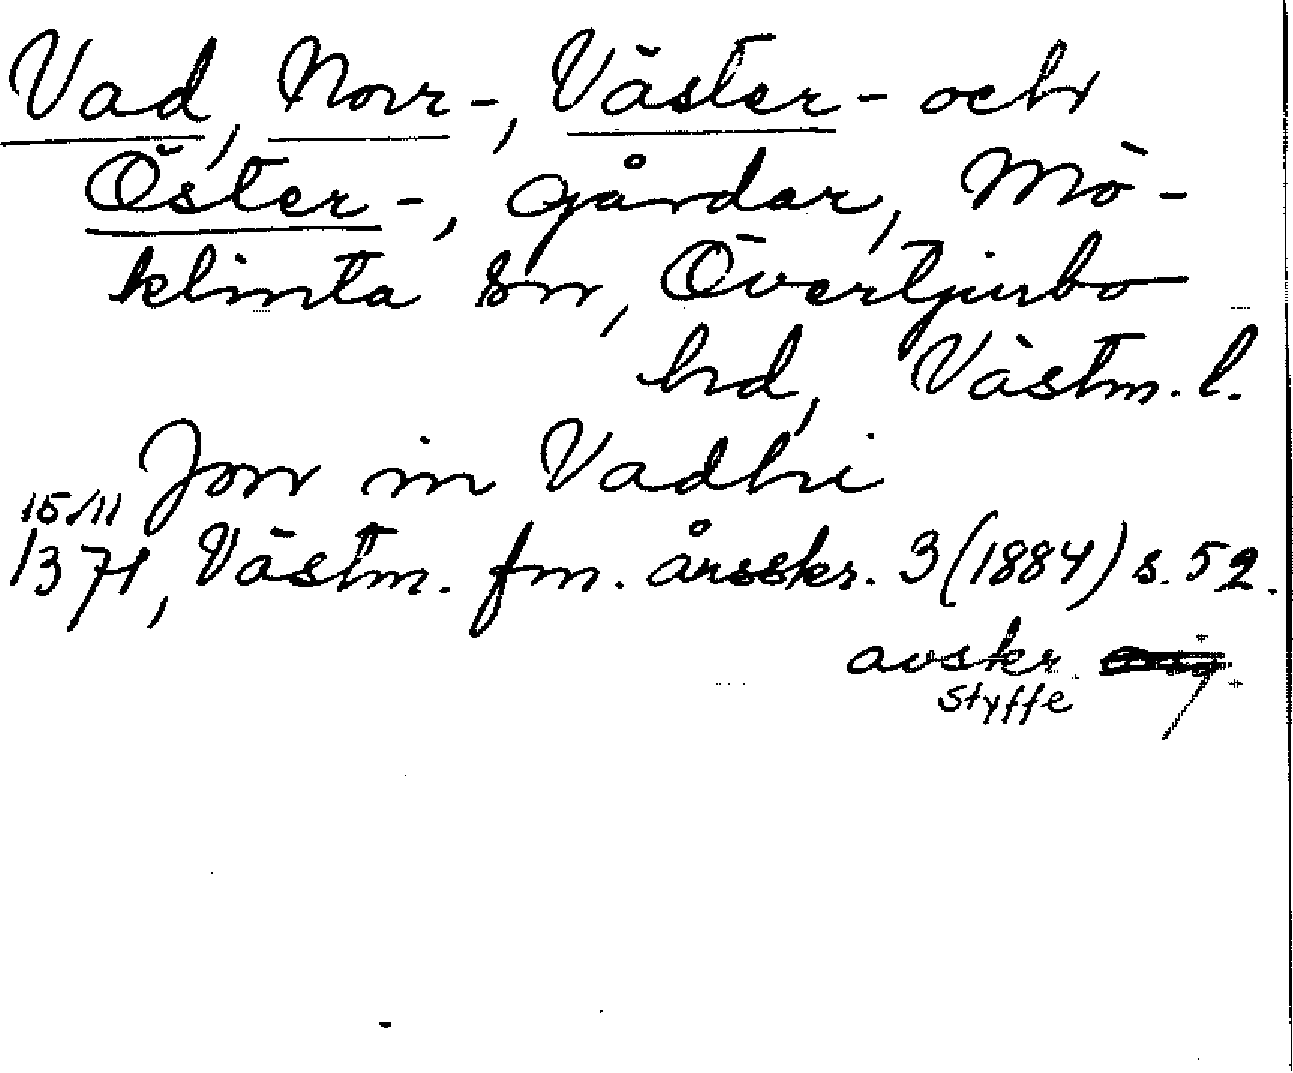 Vad, Norr-, Väster- och
Öster-, gårdar, Mö-
klinta sn, Övertjurbo
hd, Västm. l.
Jon in Vadhi
15/11
1371, Västm. fm. årsskr. 3 (1884) s. 52.
avskr.
Styffe